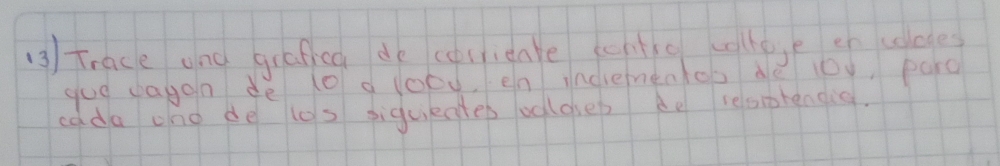 13) Trace una grafica de corriente contra voltaje en valores
que vayan de 10 a 100v. en incrementos de 10v, para
cada uno de los siguientes valores de resistencia.